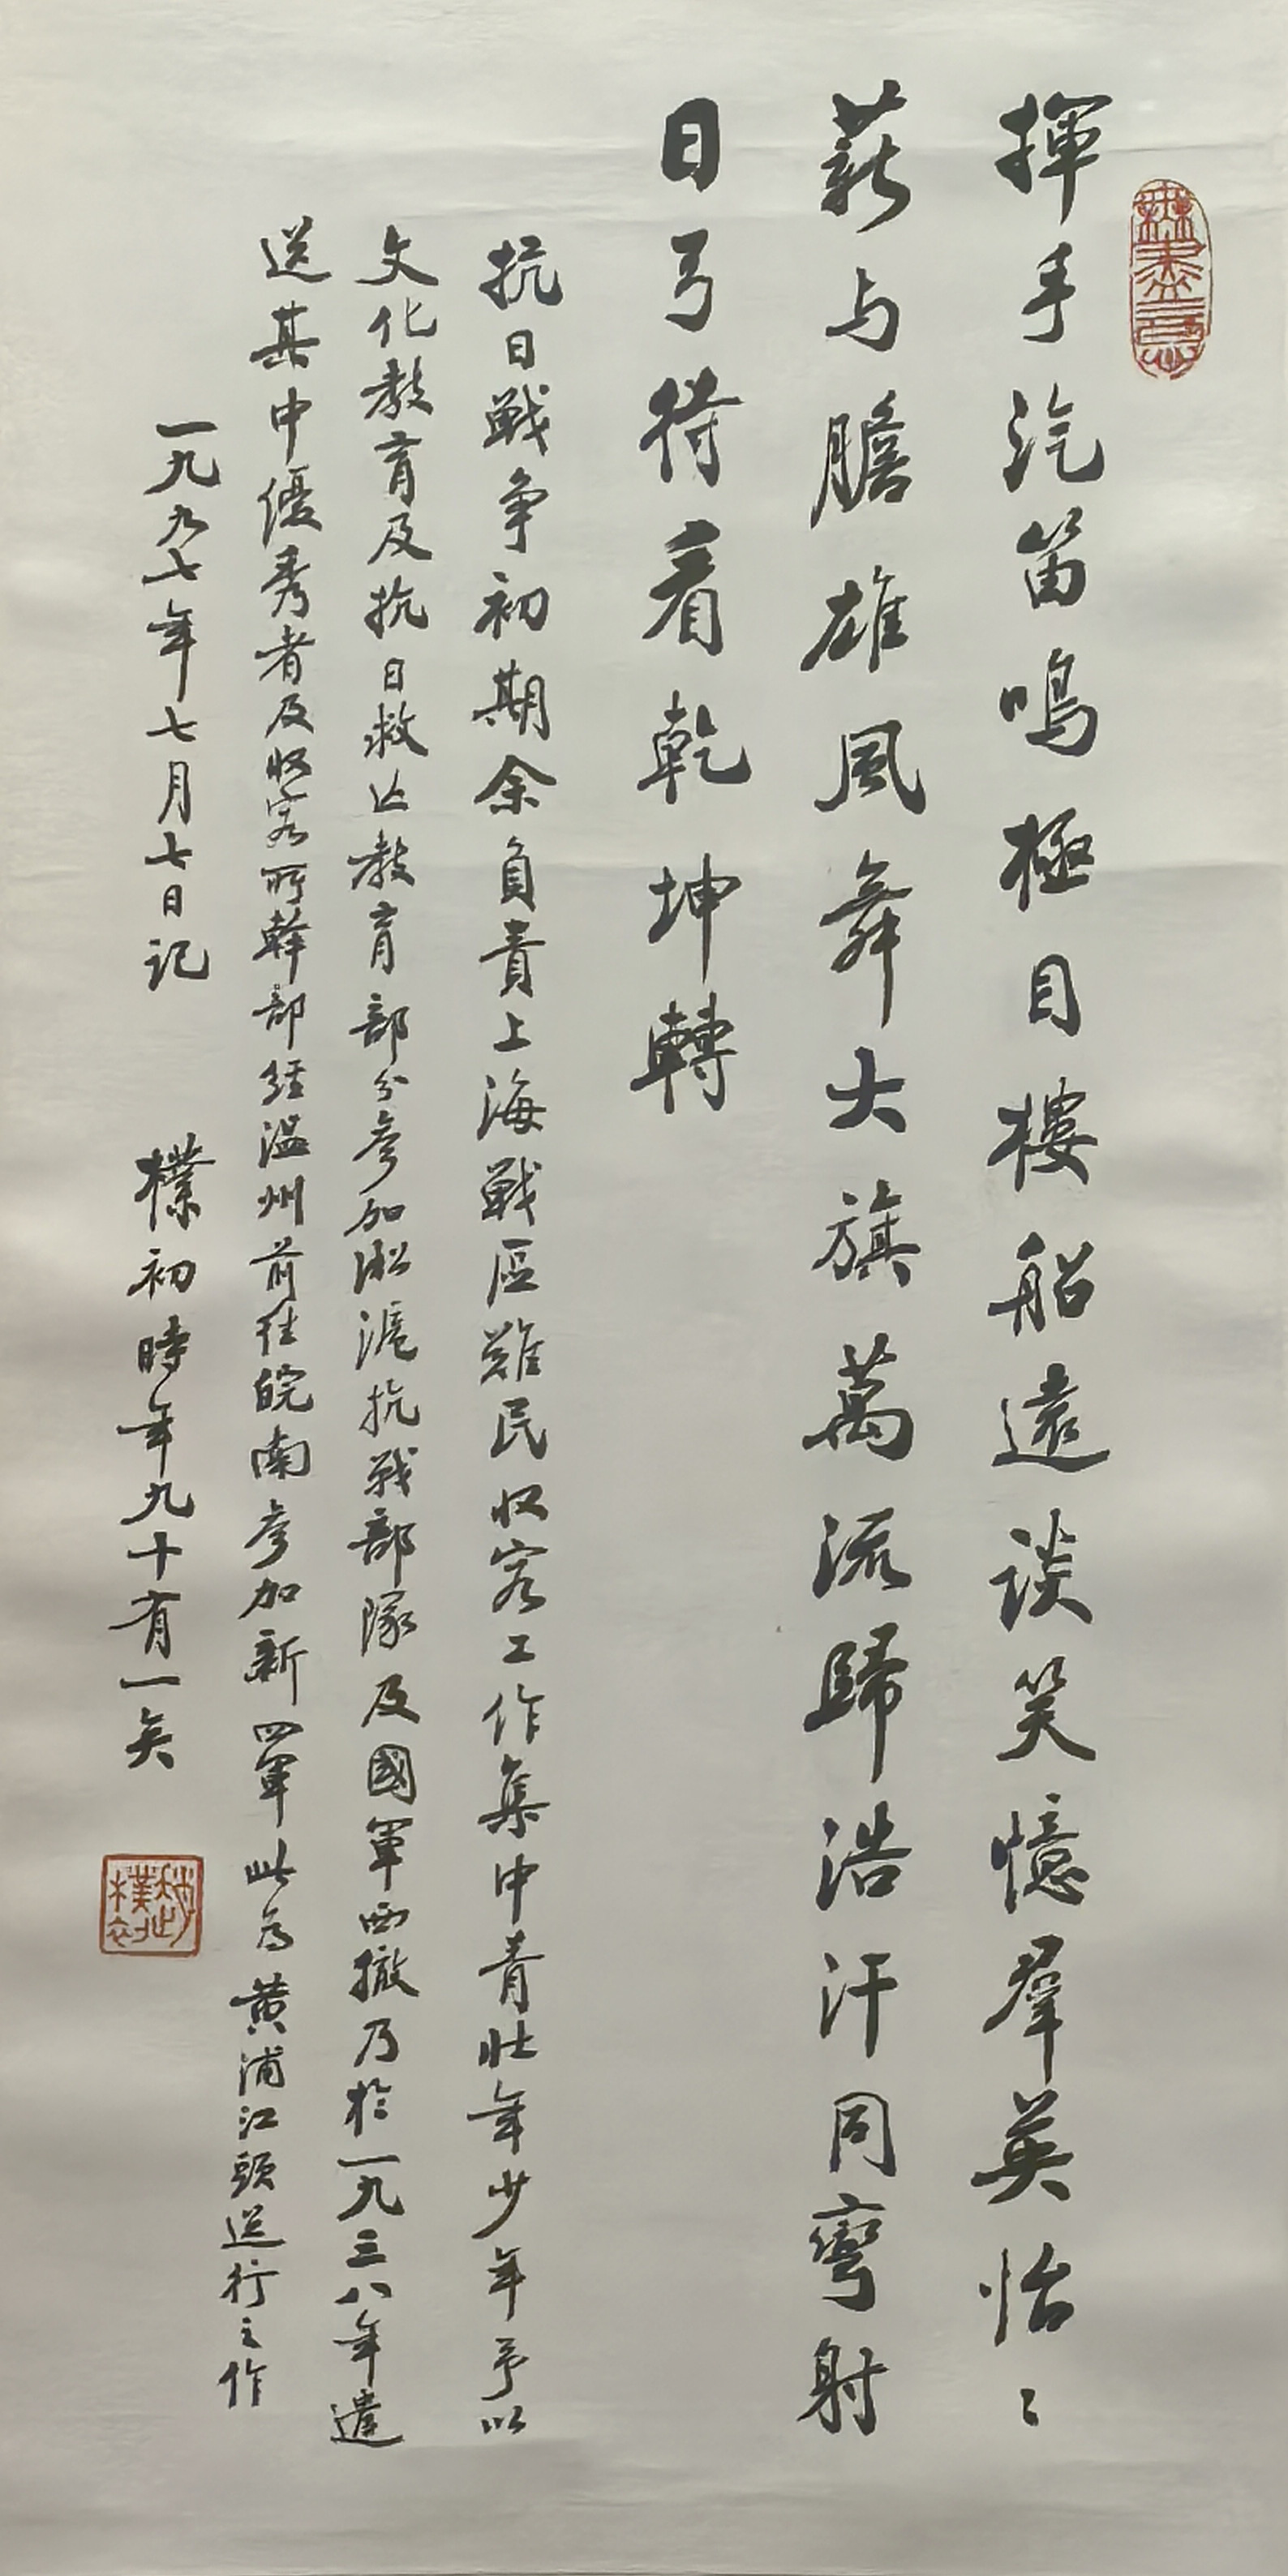 無盡意
揮手汽笛鳴極目樓船遠談笑憶羣英怡〻
薪与膽雄風舞大旗萬流歸浩汗同彎射
日弓待看乾坤轉
抗日戰争初期余負責上海戰區難民收容工作集中青壯年少年予以
文化教育及抗日救亡教育部分參加淞滬抗戰部隊及國軍西撤乃於一九三八年遣
送其中優秀者及收容所幹部經温州前往皖南參加新四軍此为黄浦江頭送行之作
一九九七年七月七日記 樸初時年九十有一矣
趙樸初